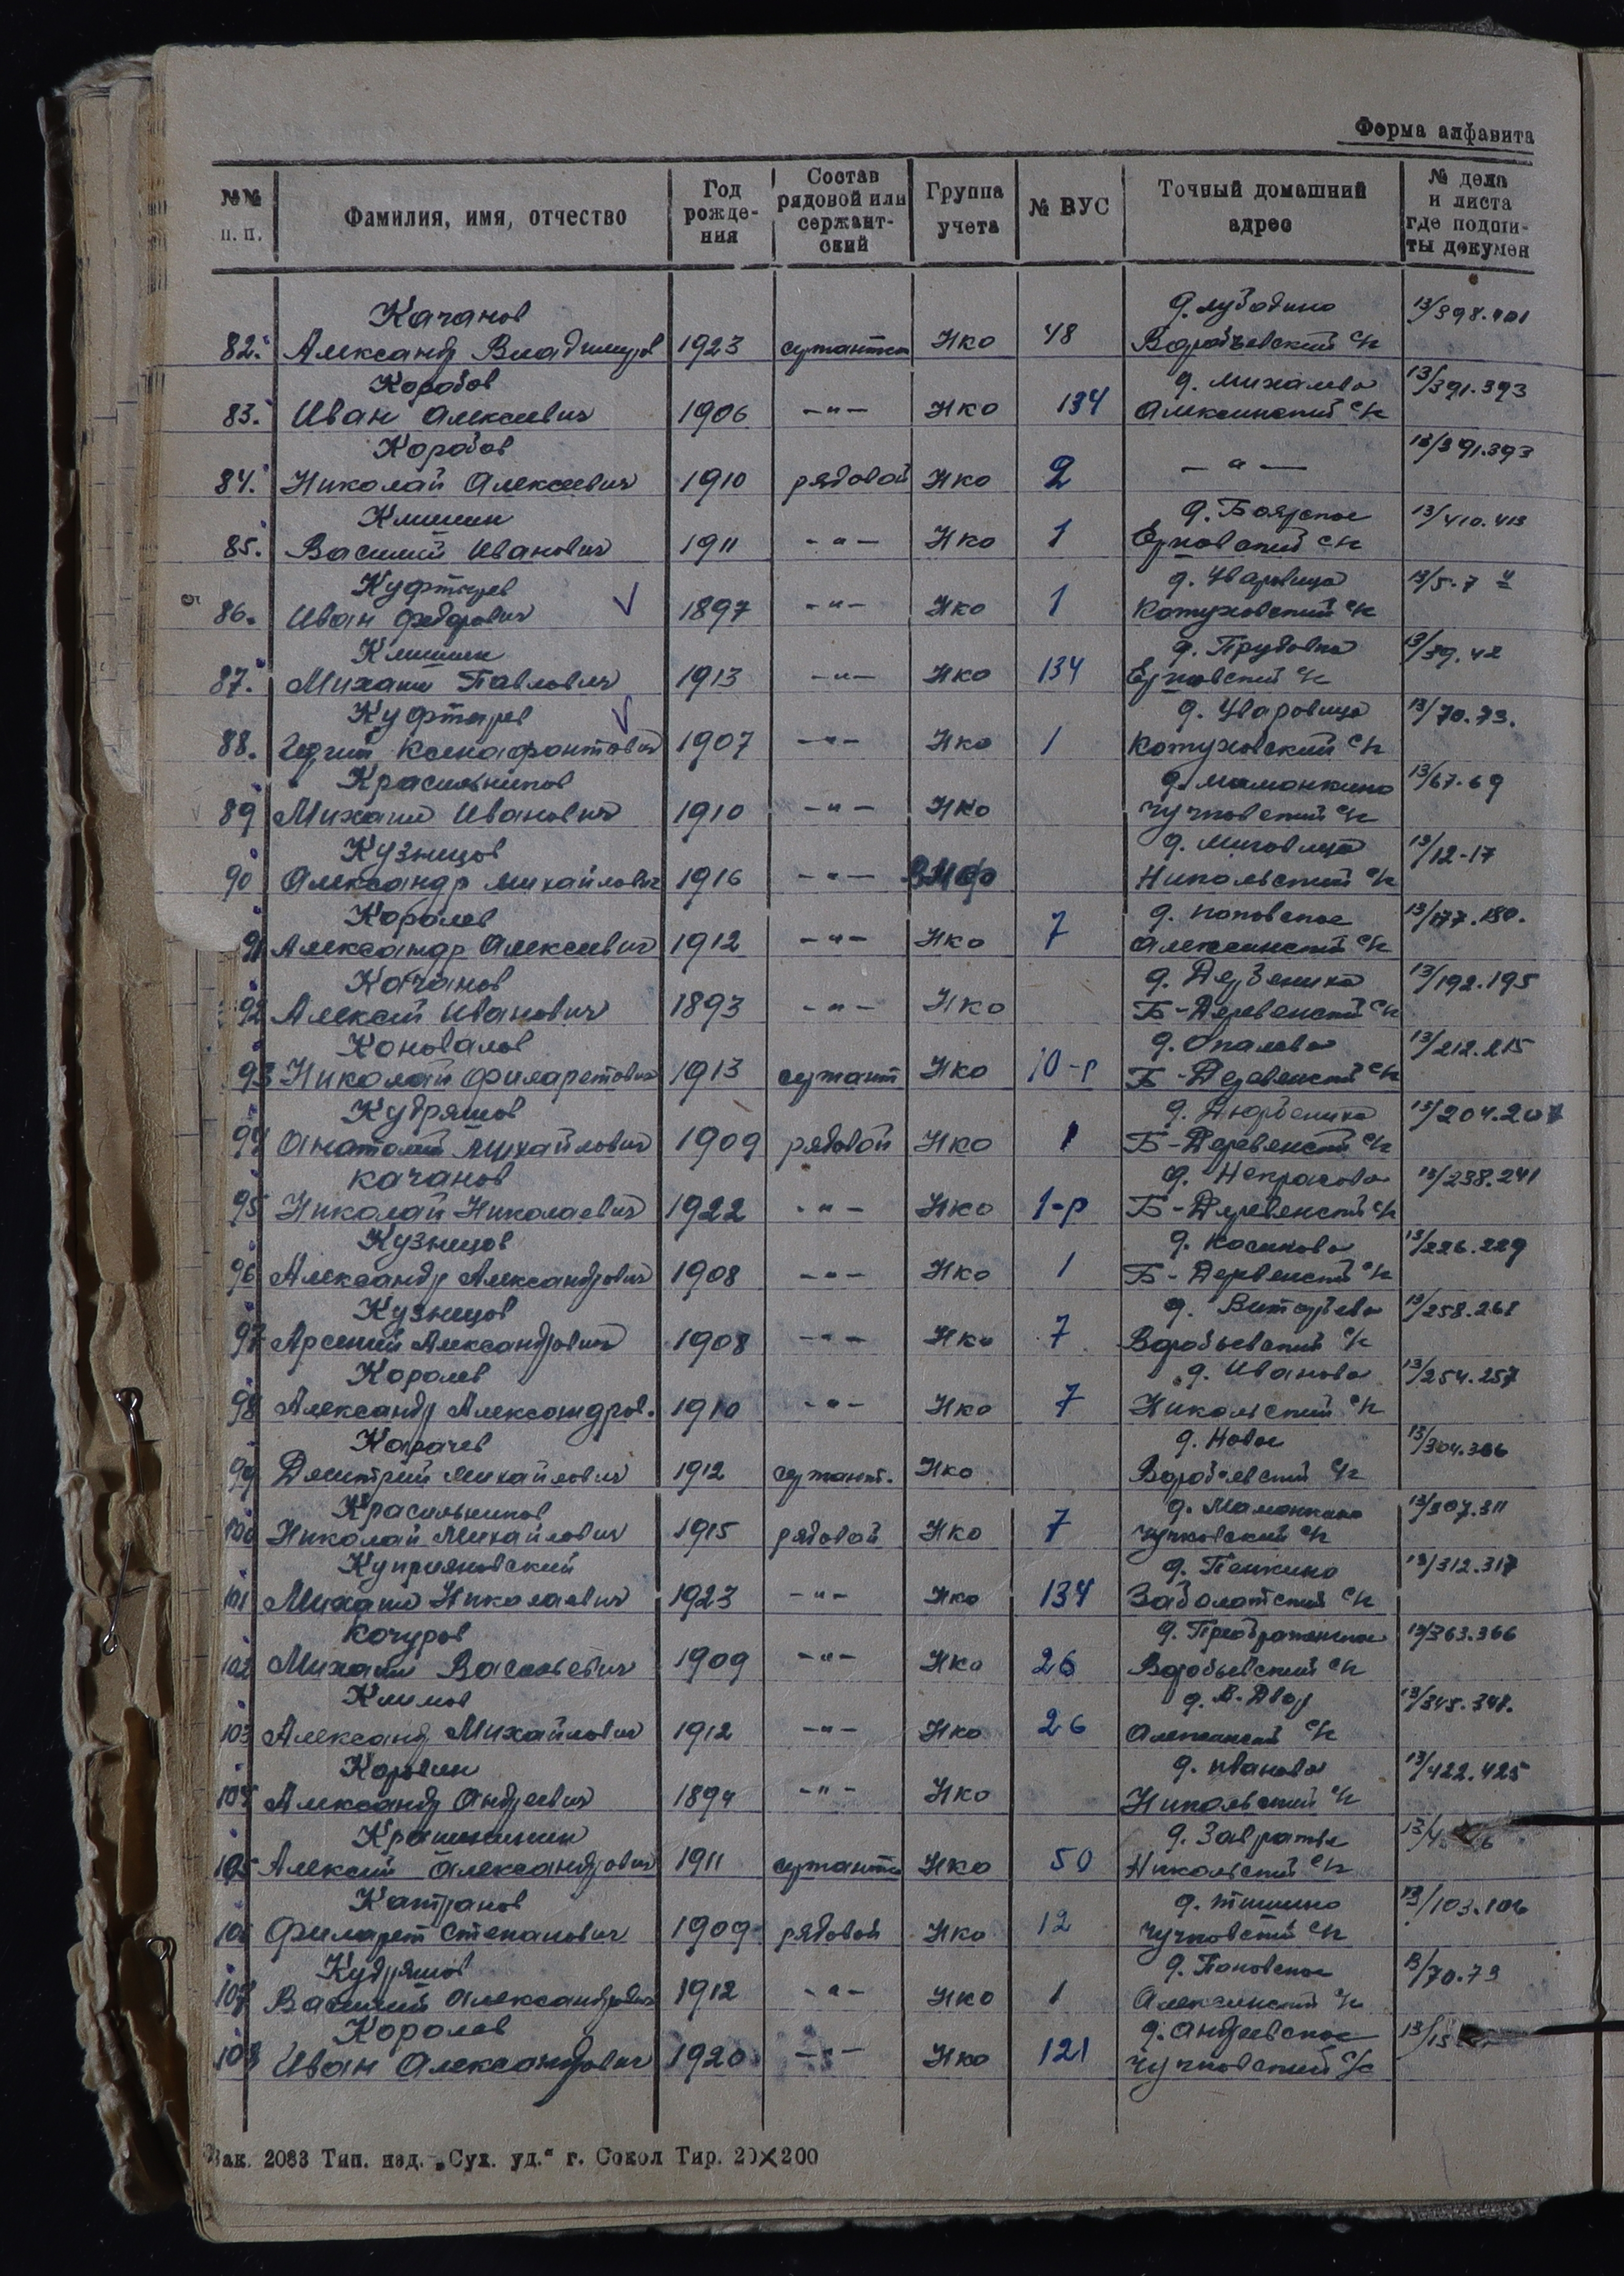 Форма алфавита
№№ п. п. Фамилия, имя, отчество Год рожде- ния Состав рядовой или сержант- ский Группа учета № ВУС Точный домашний адрес № дела и листа где подши- ты докумен
Качанов д. 13/398.401
82. Александр Владимиров 1923 НКО 48 Воробьевский с/с
Коробов д. Михалево 13/391.393
83. Иван Алексеевич 1906 -"- НКО 134 Алексинский с/с
Коробов 13/391.393
84. Николай Алексеевич 1910 рядовой НКО 2 -"-
Клишин д. Боярское 13/410.413
85. Василий Иванович 1911 -"- НКО 1 с/с
Куфтырев д. Уваровица 13/5.7
86. Иван Федорович V 1897 -"- НКО 1 Кожуховский с/с
Клишин д. Прудовка 13/39.42
87. Михаил Павлович 1913 -"- НКО 134 с/с
Куфтырев V д. Уваровица 13/70.73.
88. Ксенофонтович 1907 -"- НКО 1 Кожуховский с/с
Красильников д. Мамонкино 13/67.69
89 Михаил Иванович 1910 -"- НКО Чучковский с/с
Кузнецов д. 13/12-17
90 Александр Михайлович 1916 -"- ВМФ Никольский с/с
Королев д. Поповское 13/177.180.
91 Александр Алексеевич 1912 -"- НКО 7 Алексинский с/с
Качанов д. 13/192.195
92 Алексей Иванович 1893 -"- НКО Б-Деревенский с/с
Коновалов д. Опалево 13/212.215
93 Николай Филаретович 1913 сержант НКО 10-р Б-Деревенский с/с
Кудряшов д. 13/204.207
94 Анатолий Михайлович 1909 рядовой НКО 1 Б-Деревенский с/с
Качанов д. Некрасово 13/238.241
95 Николай Николаевич 1922 -"- НКО 1-р Б-Деревенский с/с
Кузнецов д. Косиково 13/226.229
96 Александр Александрович 1908 -"- НКО 1 Б-Деревенский с/с
Кузнецов д. 13/258.261
97 Арсений Александрович 1908 -"- НКО 7 Воробьевский с/с
Королев д. Иваново 13/254.257
98 Александр Александров. 1910 -"- НКО 7 Никольский с/с
д. Новое 13/304.306
99 Дмитрий Михайлович 1912 сержант. НКО Воробьевский с/с
Красильников д. Мамонкино 13/307.311
100 Николай Михайлович 1915 рядовой НКО 7 Чучковский с/с
Куприяновский д. Пенкино 13/312.317
101 Михаил Николаевич 1923 -"- НКО 134 Заболотский с/с
Кочуров д. Преображенское 13/363.366
102 Михаил Васильевич 1909 -"- НКО 26 Воробьевский с/с
Климов д. В. Двор 13/345.348.
103 Александр Михайлович 1912 -"- НКО 26 Алексинский с/с
д. Иваново 13/422.425
104 Александр Андреевич 1894 -"- НКО Никольский с/с
д. Завражье
105 Алексей Александрович 1911 НКО 50 Никольский с/с
Катранов д. Тишино 13/103.106
106 Филарет Степанович 1909 рядовой НКО 12 Чучковский с/с
Кудряшов д. Поповское 13/70.73
107 Василий Александрович 1912 -"- НКО 1 Алексинский с/с
Королев д. Андреевское
108 Иван Александрович 1920 -"- НКО 121 Чучковский с/с
Зак. 2083 Тип. изд. „Сух. уд.“ г. Сокол Тир. 20×200